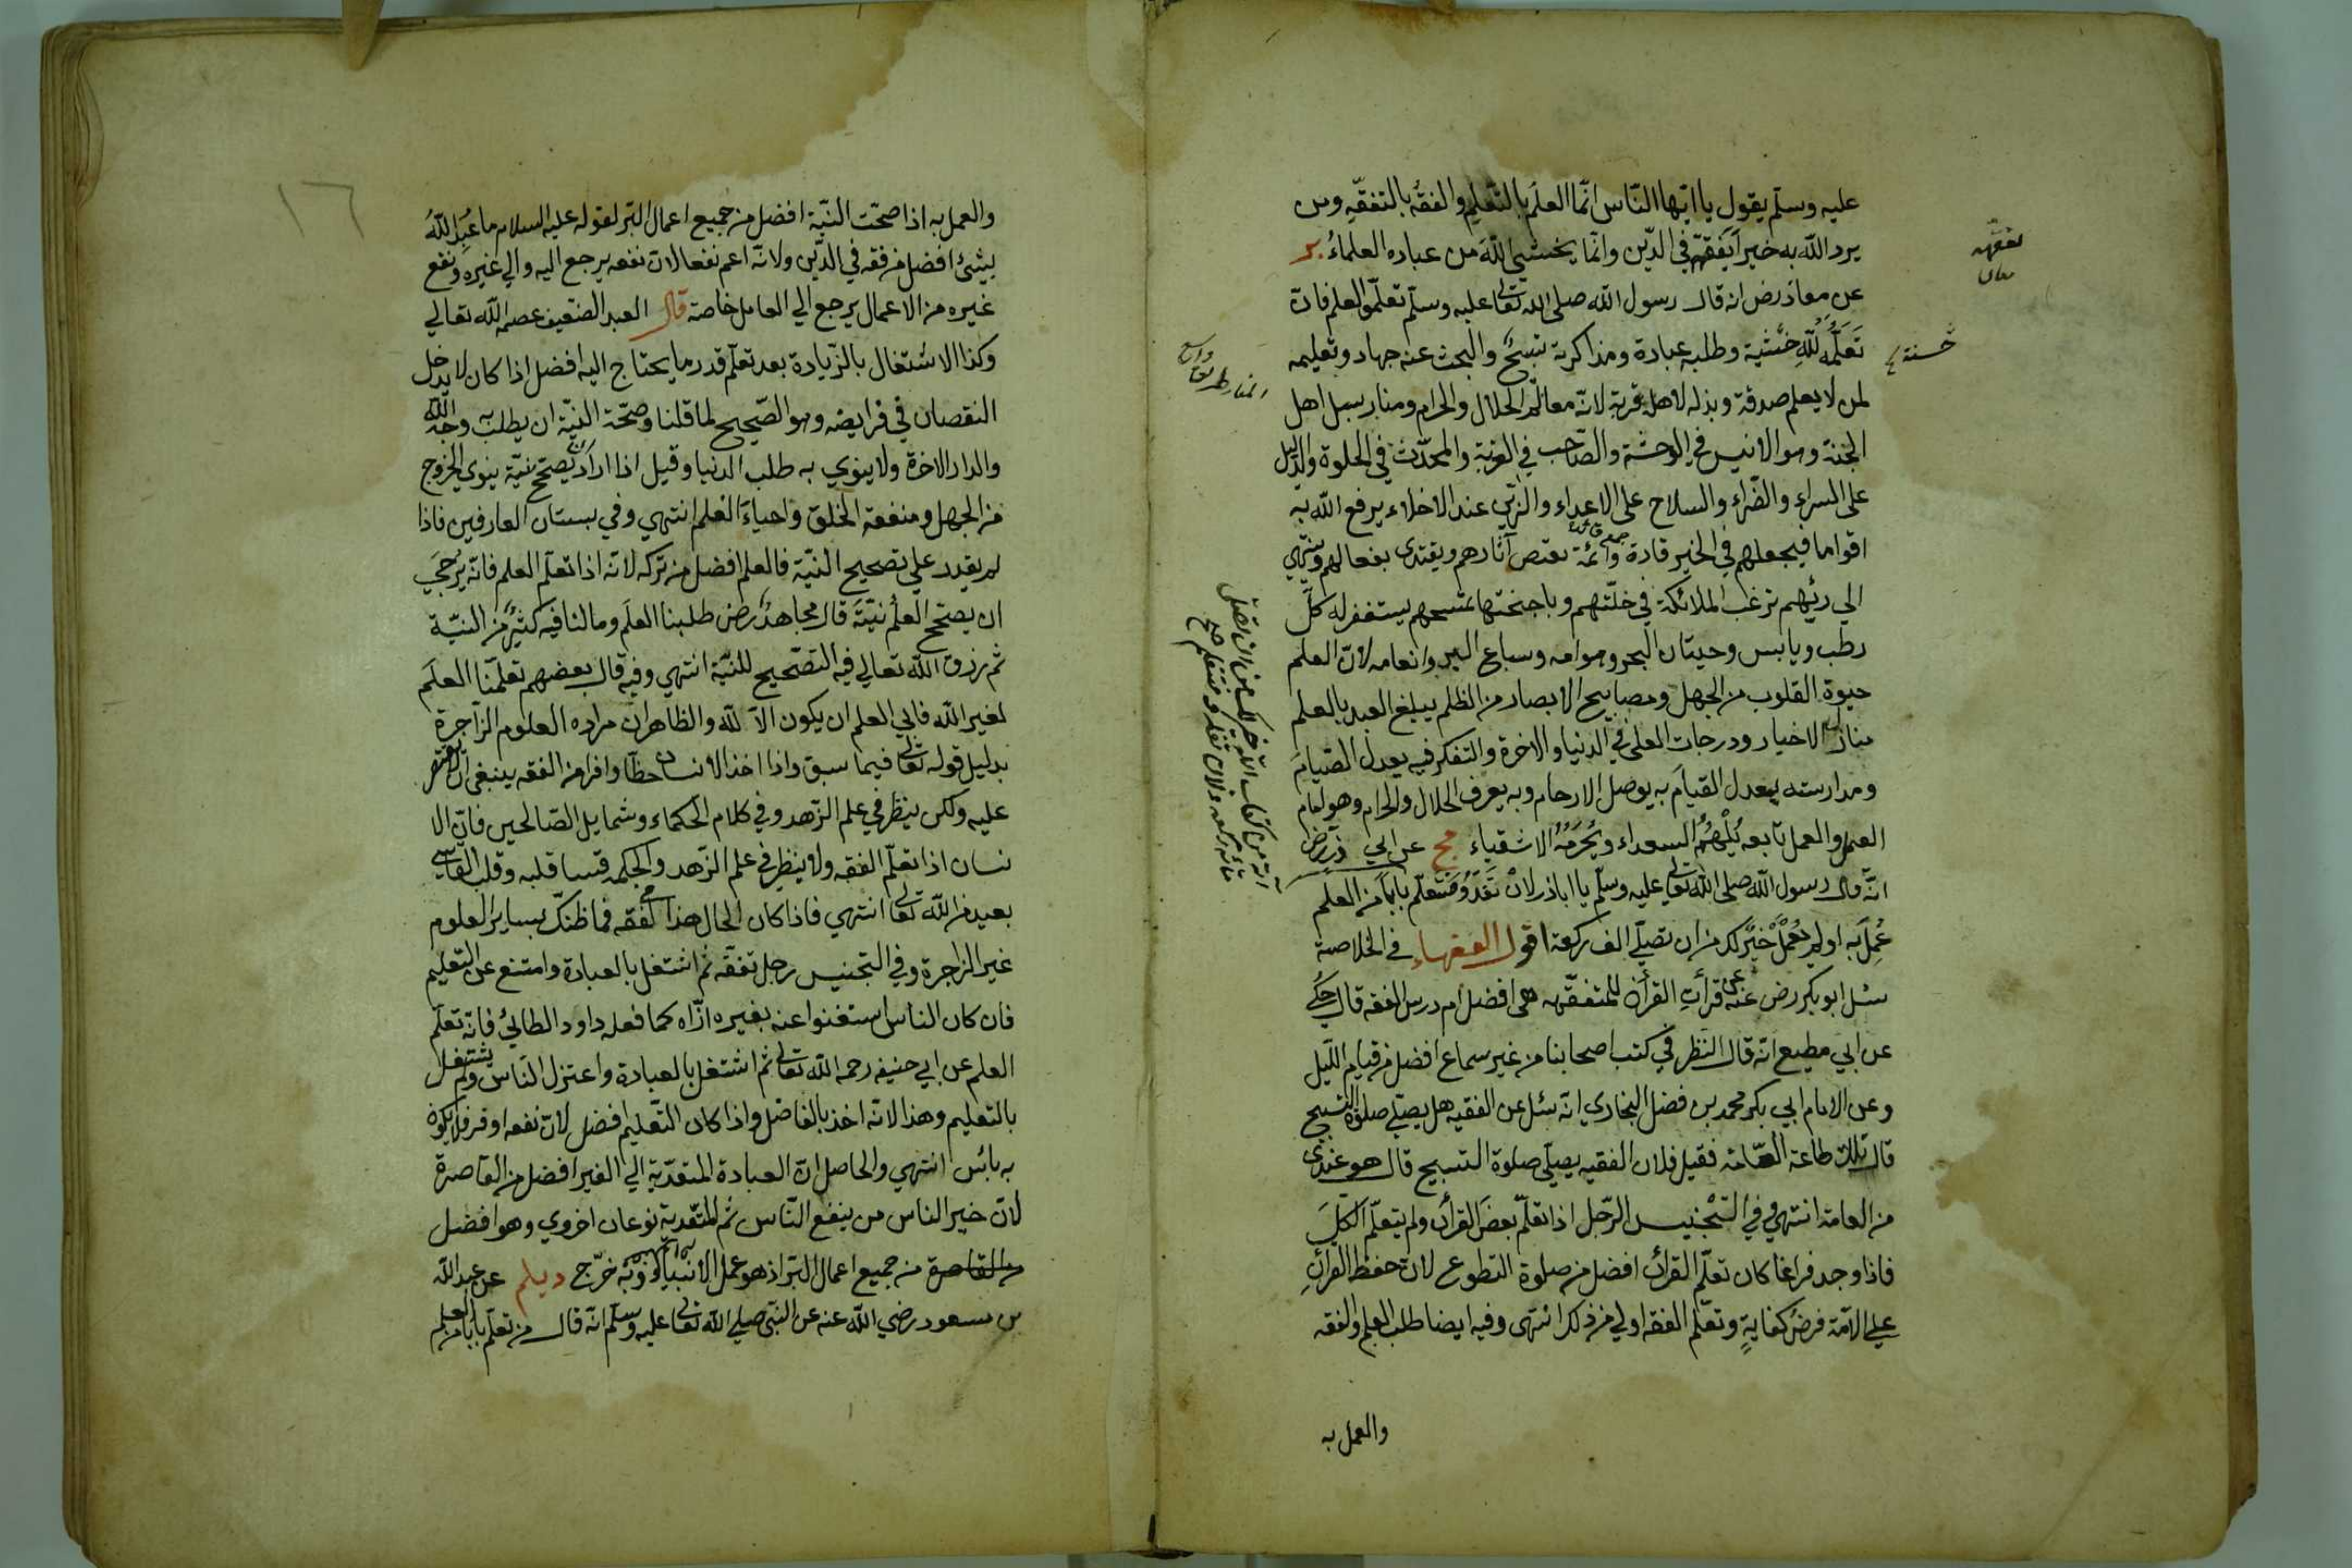 عليه وسلم يقول يا ايها الناس انما العلم بالتعلم والفقه بالتفقه ومن
يرد الله به خيرا يفقهه في الدين وانما يخشي الله من عباده العلماء بر
عن معاذ رض انه قال رسول الله صلي الله تعالى عليه وسلم تعلموا العلم فان
تعلمه لله خشية وطلبه عبادة ومذاكرته تسبيح والبحث عنه جهاد وتعليمه
لمن لا يعلم صدقة وبذله لاهله قربة لانه معالم الحلال والحرام ومنار سبل اهل
الجنة وهو الانيس في الوحشة والصاحب في الغربة والمحدث في الخلوة والدليل
على السراء والضراء والسلاح على الاعداء والزين عند الاخلاء يرفع الله به
اقواما فيجعلهم في الخير قادة وائمة تقتص آثارهم ويقتدى بفعالهم وينتهي
الي رئيهم ترغب الملائكة في خلتهم وباجنحتها تمسحهم يستغفر له كل
رطب ويابس وحيتان البحر وهوامه وسباع البر وانعامه لان العلم
حيوة القلوب من الجهل ومصابيح الابصار من الظلم يبلغ العبد بالعلم
منازل الاخيار ودرجات العلى في الدنيا والاخرة والتفكر فيه يعدل الصيام
ومدارسته يعدل القيام به يوصل الارحام وبه يعرف الحلال والحرام وهو امام
العمل والعمل تابعه يلهمه السعداء ويحرمه الاشقياء مج عن ابي ذر رض
انه قال رسول الله صلى الله تعالى عليه وسلم يا اباذر لان تغدو فتتعلم بابا من العلم
عمل به او لم يعمل خير لك من ان تصلي الف ركعة اقول الفقهاء في الخلاصة
سئل ابو بكر رض عنه عن قرأت القرأن للمتفقه هي افضل ام درس الفقه قال حكي
عن ابي مطيع انه قال النظر في كتب اصحابنا من غير سماع افضل من قيام الليل
وعن الامام ابي بكر محمد بن فضل البخاري انه سئل عن الفقيه هل يصلي صلوة التسبيح
قال تلك طاعة العامة فقيل فلان الفقيه يصلي صلوة التسبيح قال هو عندى
من العامة انتهى وفي التجنيس الرجل اذا تعلم بعض القرأن ولم يتعلم الكل
فاذا وجد فراغا كان تعلم القرأن افضل من صلوة التطوع لان حفظ القرأن
علي الامة فرض كفاية وتعلم الفقه اولي من ذلك انتهى وفيه ايضا طلب العلم والفقه
والعمل به
تفقهه
حسنة
والعمل به اذا صحت النية افضل من جميع اعمال البر لقوله عليه السلام ما عبد الله
بشئ افضل من فقه في الدين ولانه اعم نفعا لان نفعه يرجع اليه والي غيره ونفع
غيره من الاعمال يرجع الي العامل خاصة قال العبد الضعيف عصمه الله تعالي
وكذا الاشتغال بالزيادة بعد تعلم قدر ما يحتاج اليه افضل اذا كان لا يدخل
النقصان في فرايضه وهو الصحيح لما قلنا وصحة النية ان يطلب به وجه الله
والدار الاخرة ولا ينوي به طلب الدنيا وقيل اذا اراد ان يصحح نيته ينوي الخروج
من الجهل ومنفعة الخلق واحياء العلم انتهي وفي بستان العارفين فاذا
لم يقدر علي تصحيح النية فالعلم افضل من تركه لانه اذا تعلم العلم فانه يرجى
ان يصحح العلم نيته قال مجاهد رض طلبنا العلم وما لنا فيه كثير من النية
ثم رزق الله تعالي فيه التصحيح للنية انتهي وفيه قال بعضهم تعلمنا العلم
لغير الله فابي العلم ان يكون الا لله والظاهر ان مراده العلوم الزاجرة
بدليل قوله تعالى فيما سبق واذا اخذ الانسان حظا وافرا من الفقه ينبغي ان لا يقتصر
عليه ولكن ينظر في علم الزهد وفي كلام الحكماء وشمايل الصالحين فان الا
نسان اذا تعلم الفقه ولا ينظر في علم الزهد والحكمة قسا قلبه وقلب القاسي
بعيد من الله تعالى انتهي فاذا كان الحال هذا في الفقه فما ظنك بساير العلوم
غير الزاجرة وفي التجنيس رجل تفقه ثم اشتغل بالعبادة وامتنع عن التعليم
فان كان الناس استغنوا عنه بغيره اجزاه كما فعله داود الطائي فانه تعلم
العلم عن ابي حنيفه رحمه الله تعالى ثم اشتغل بالعبادة واعتزل الناس ولم يشتغل
بالتعليم وهذا لانه اخذ بالفاضل واذا كان التعليم افضل لان نفعه اوفر فلا يكون
به بائس انتهي والحاصل ان العبادة المتعدية الي الغير افضل من القاصرة
لان خير الناس من ينفع الناس ثم المتعدية نوعان اخروي وهو افضل
من القاصرة من جميع اعمال البر اذ هو عمل الانبياء وبه خرج ديلم عن عبد الله
بن مسعود رضي الله عنه عن النبي صلي الله تعالى عليه وسلم انه قال من تعلم بابا من العلم
١٦